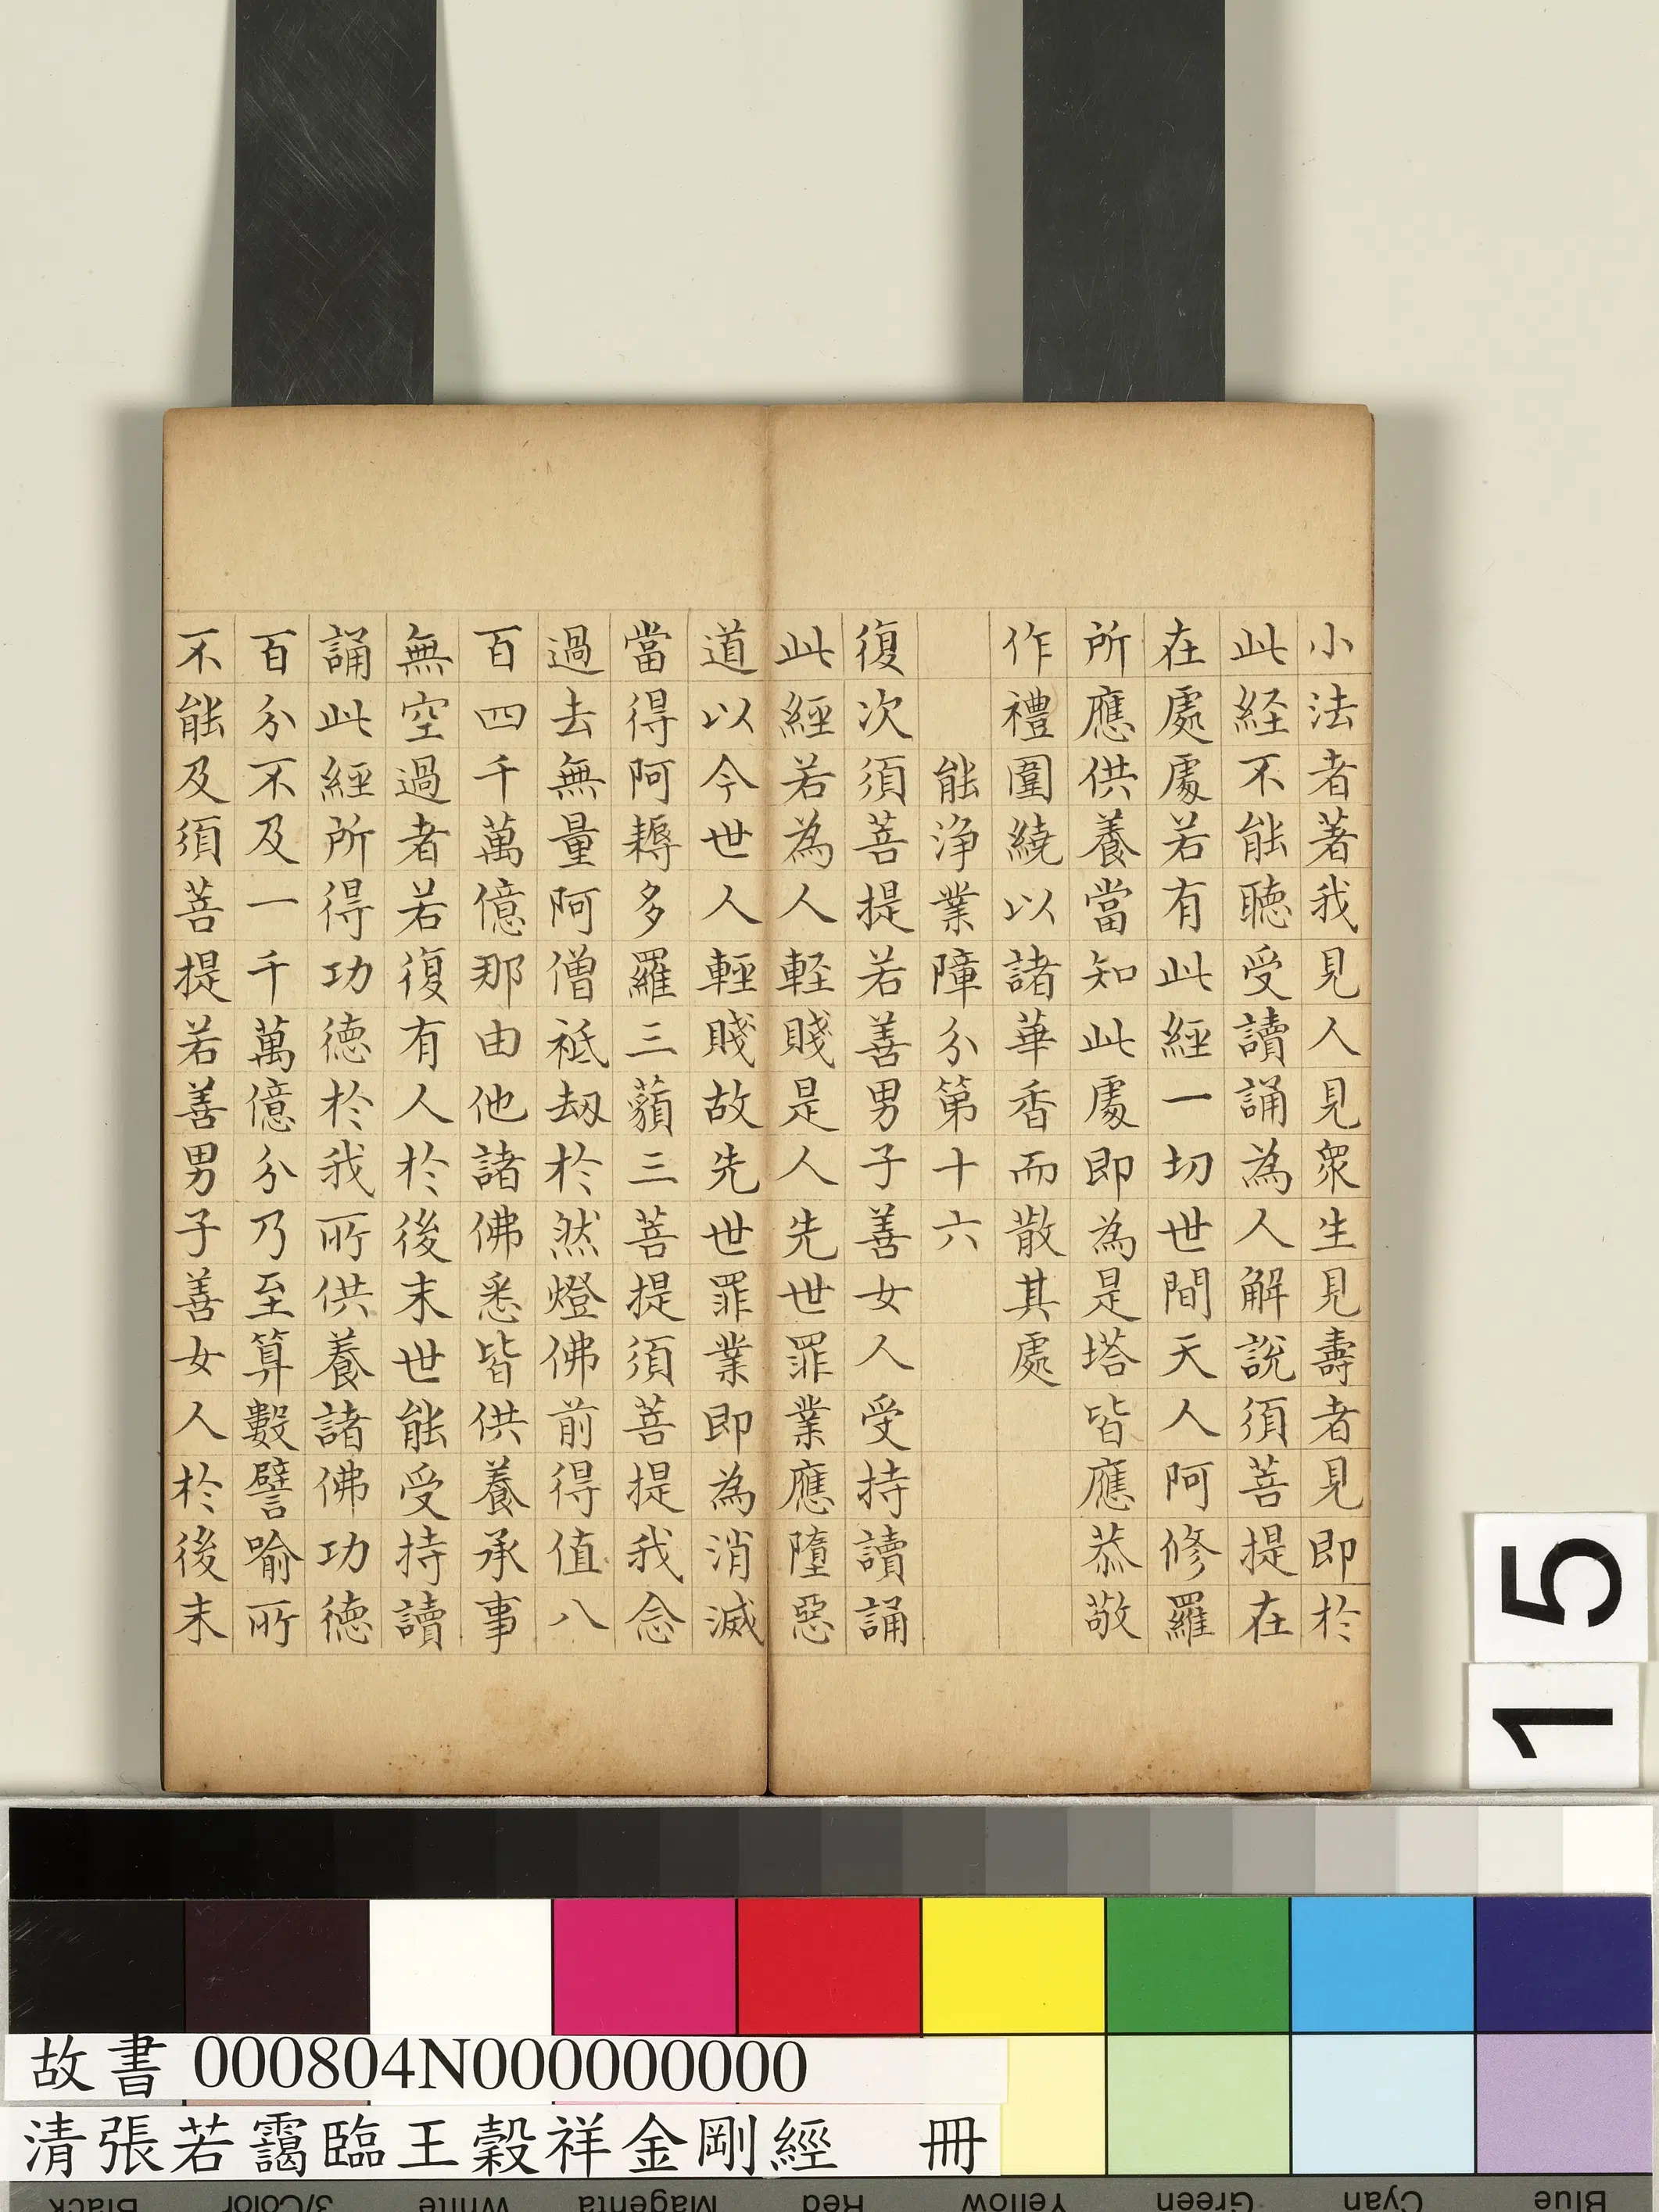 小法者著我見人見眾生見壽者見即於
此経不能聽受讀誦為人解說須菩提在
在處處若有此經一切世間天人阿修羅
所應供養當知此處即為是塔皆應恭敬
作禮圍繞以諸華香而散其處
能淨業障分第十六
復次須菩提若善男子善女人受持讀誦
此經若為人軽賤是人先世罪業應墮惡
道以今世人輕賤故先世罪業即為消滅
當得阿耨多羅三藐三菩提須菩提我念
過去無量阿僧祇劫於然燈佛前得值八
百四千萬億那由他諸佛悉皆供養承事
無空過者若復有人於後末世能受持讀
誦此經所得功德於我所供養諸佛功德
百分不及一千萬億分乃至算數譬喻所
不能及須菩提若善男子善女人於後末
15
故書 000804N000000000
清張若靄臨王穀祥金剛經 冊
Black 3/Color White Magenta Red Yellow Green Cyan Blue